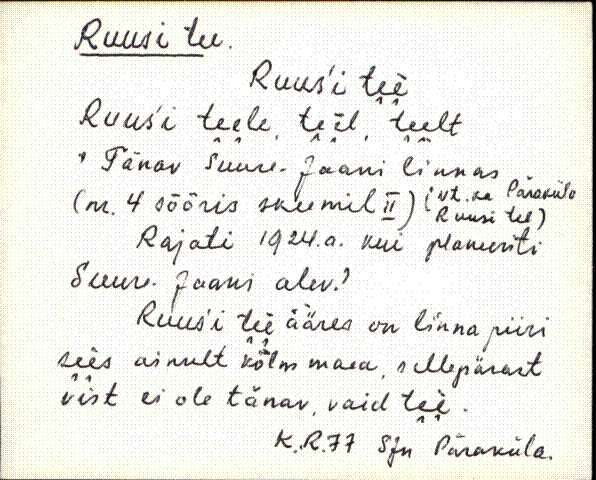 Ruusi tee.
Ruus'i tee
Ruus'i teele, teel, teelt
"Tänav Suure-Jaani linnas
(nr. 4 sõõris skeemil II) (vt. ka Päraküla
Ruusi tee)
Rajati 1924.a. kui planeeriti
Suure-Jaani alev."
Ruus'i tee ääres on linna piiri
sees ainult kolm maea, sellepärast
vist ei ole tänav, vaid tee.
K.R.77 SJn Päraküla.